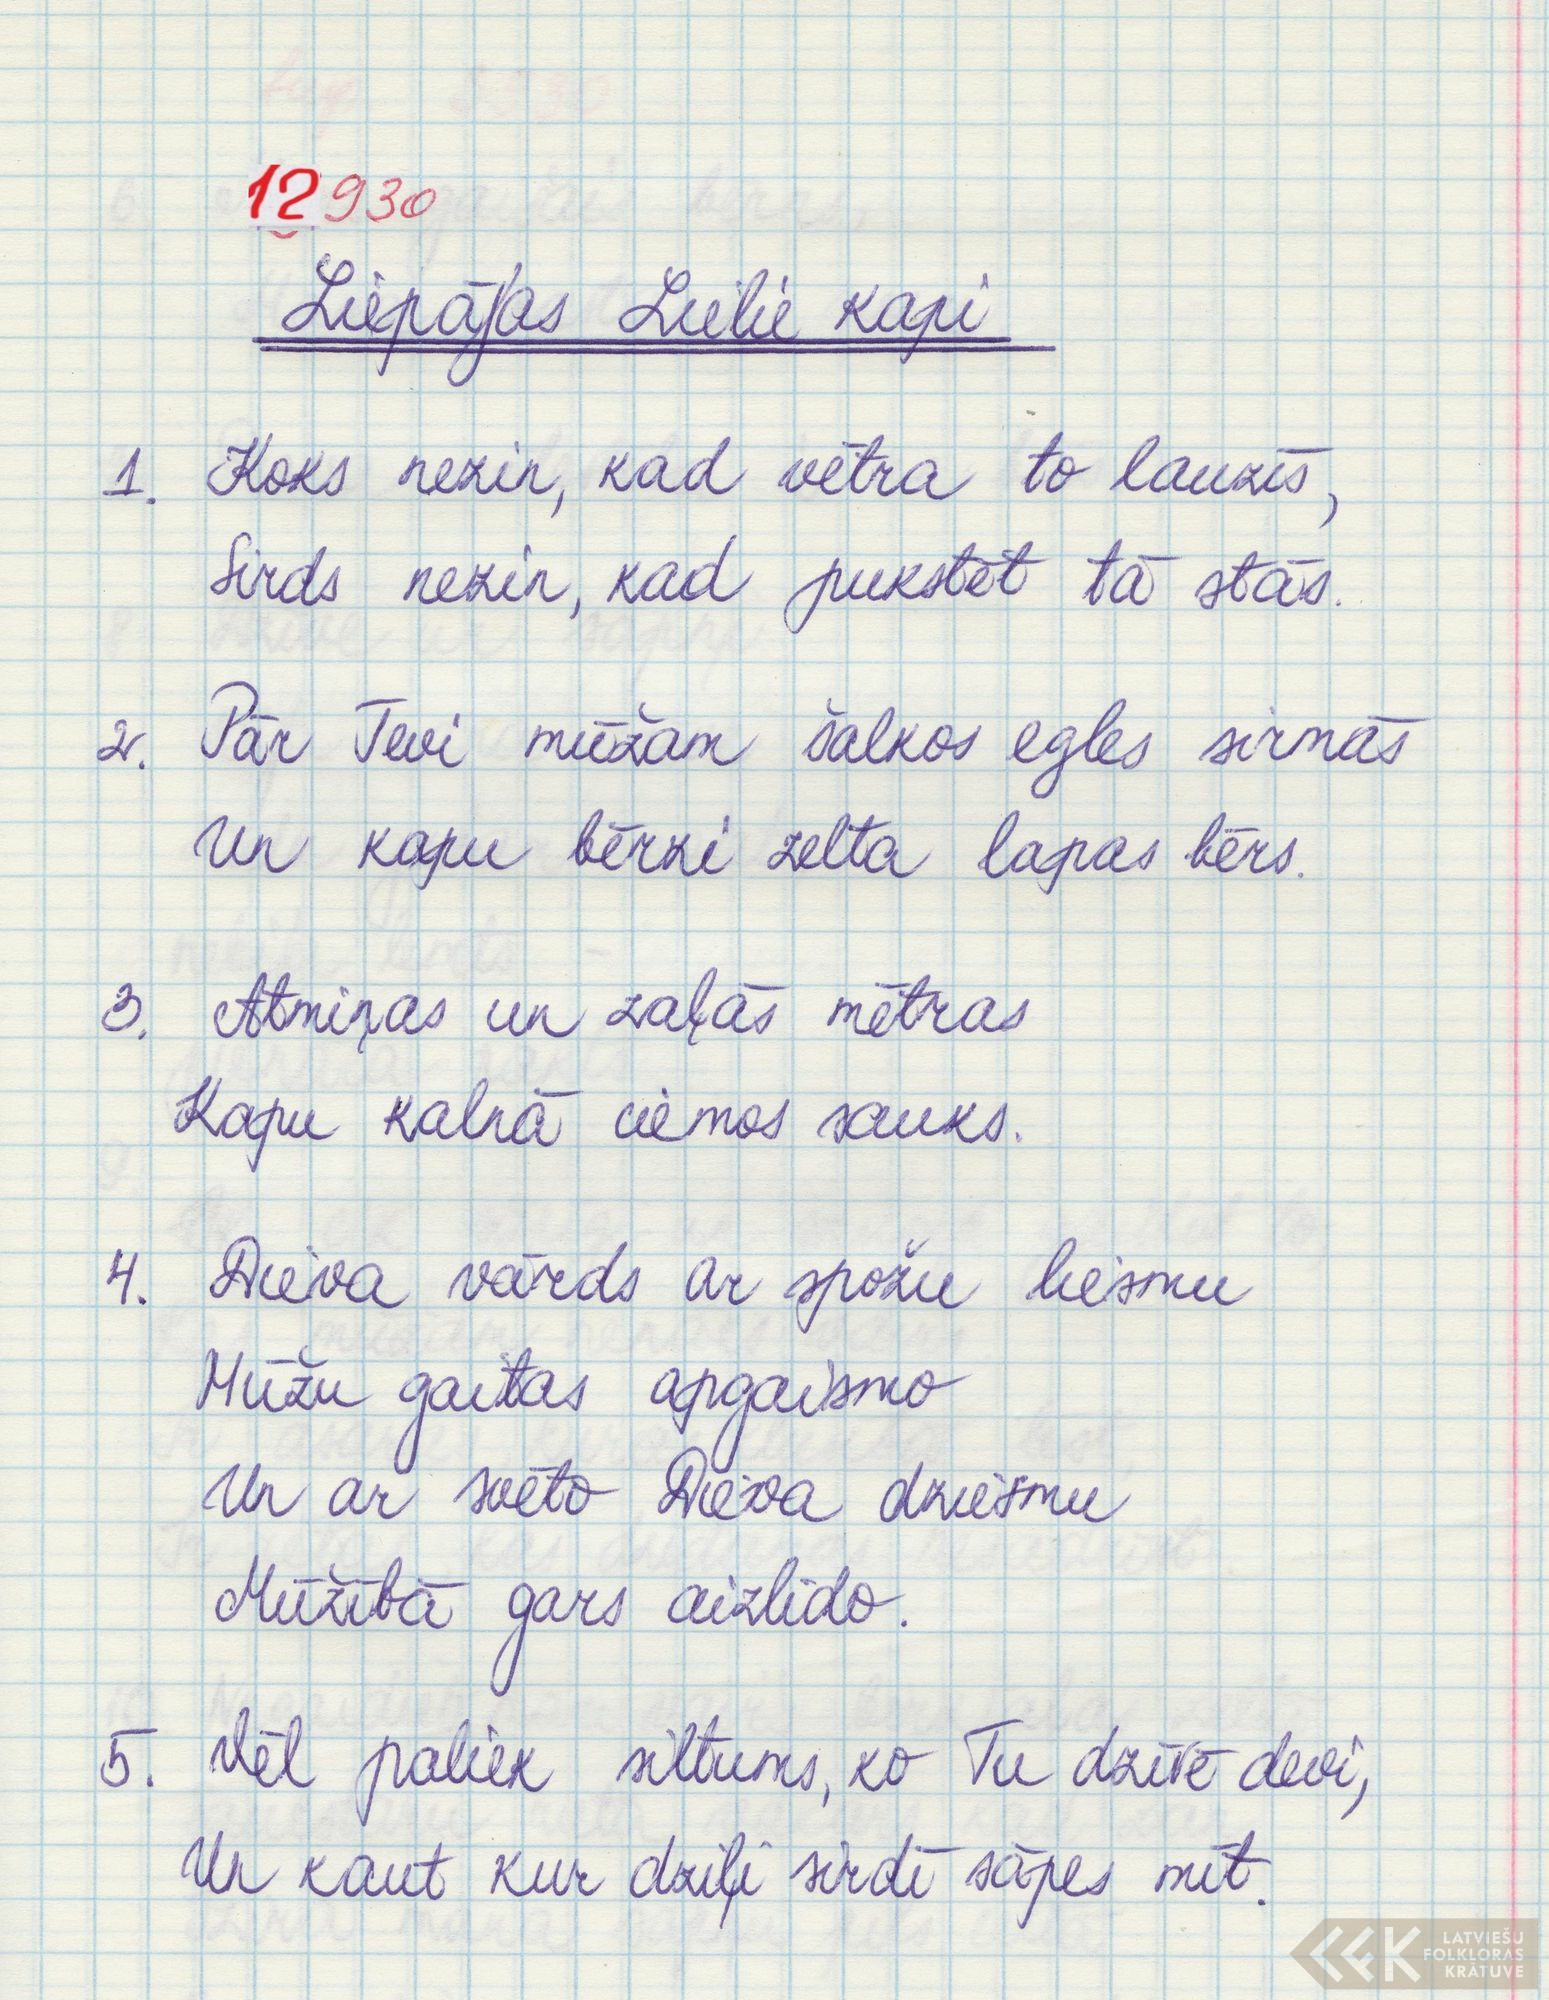 12930
Liepājas Lielie kapi
1. Koks nezin, kad vētra to lauzīs,
Sirds nezin, kad pukstēt tā stās.
2. Pār Tevi mūžam šalkos egles sirmās
Un kapu bērzi zelta lapas bērs.
3. Atmiņas un zaļās mētras
Kapu kalnā ciemos sauks.
4. Dieva vārds ar spožu liesmu
Mūžu gaitas apgaismo
Un ar svēto Dieva dziesmu
Mūžībā gars aizlido.
5. Vēl paliek siltums, ko Tu dzīvē devi,
Un kaut kur dziļi sirdī sāpes mīt.
LATVIEŠU
FOLKLORAS
KRĀTUVE